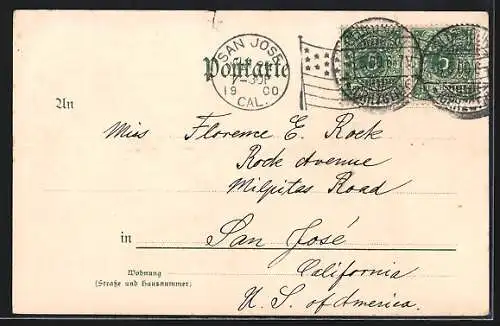 SAN JOSE
7-30P
19 00
CAL.
Postkarte
An
Miss Florence E. Rock
Rock Avenue
Milpitas Road
in San José
California
U. S. of America.
Wohnung
(Straße und Hausnummer)